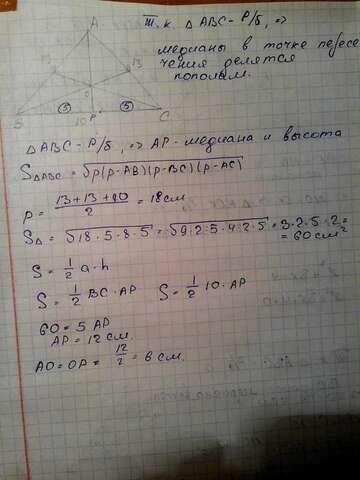 A
13 13
O
5 5
B 10 P C
Т.к. △ABC - Р/б, =>
медианы в точке пересе
чения делятся
пополам.
△ABC - Р/б, => AP - медиана и высота
S△ABC = √p(p-AB)(p-BC)(p-AC)
P = 13+13+10/2 = 18см
S△ = √18·5·8·5 = √9·2·5·4·2·5 = 3·2·5·2 =
= 60см²
S = 1/2 a·h
S = 1/2 BC·AP S = 1/2 10·AP
60 = 5 AP
AP = 12 см.
AO = OP = 12/2 = 6 см.